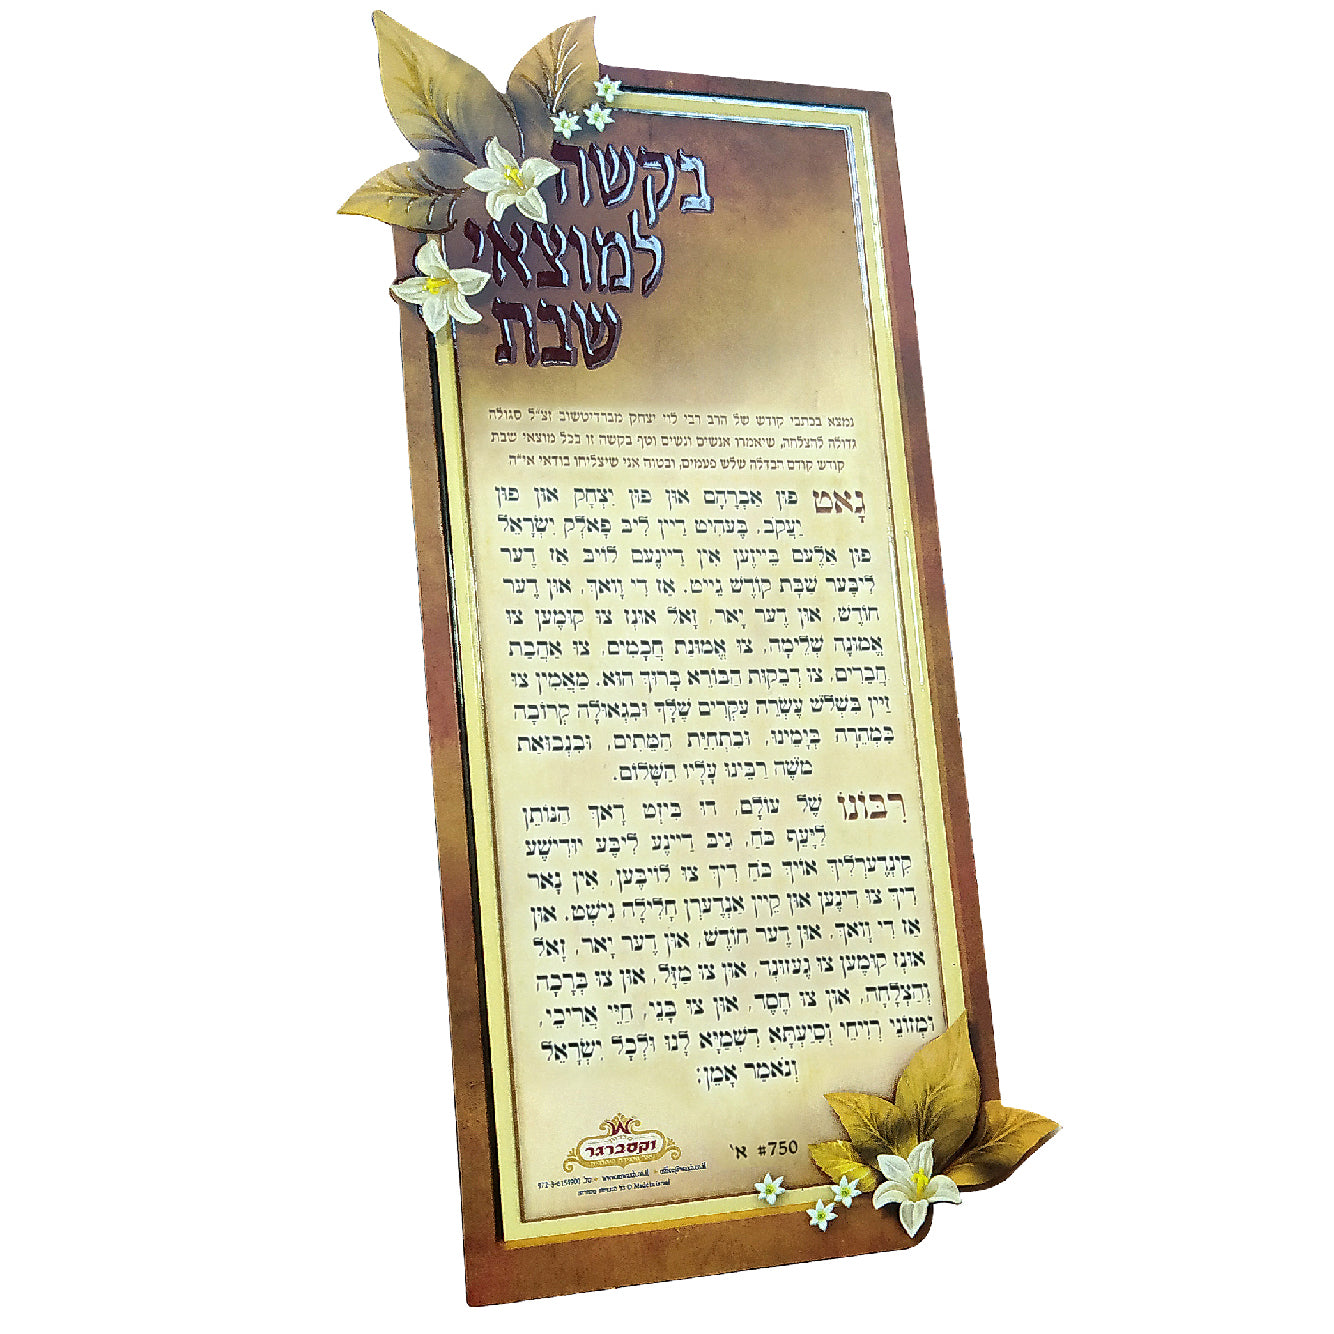 בקשה
למוצאי
שבת
נמצא בכתבי קודש של הרב רבי לוי יצחק מברדיטשוב זצ"ל סגולה
גדולה להצלחה, שיאמרו אנשים ונשים וטף בקשה זו בכל מוצאי שבת
קודש קודם הבדלה שלש פעמים, ובטוח אני שיצליחו בודאי אי"ה
גָאט פון אַבְרָהָם און פון יִצְחָק און פון
יַעֲקֹב, בַּעהִיט דַיין לִיבּ פָאלְק יִשְׂרָאֵל
פון אַלֶעם בֵּייזֶען אִין דַיינֶעם לוֹיבּ אַז דֶער
לִיבֶּער שַׁבָּת קוֹדֶשׁ גֵייט. אַז דִי וָואךְ, און דֶער
חוֹדֶשׁ, און דֶער יָאר, זָאל אונְז צו קומֶען צו
אֱמוּנָה שְׁלֵימָה, צו אֱמוּנַת חֲכָמִים, צו אַהֲבַת
חֲבֵרִים, צו דְבֵקוּת הַבּוֹרֵא בָּרוּךְ הוּא. מַאֲמִין צו
זַיין בִּשְׁלֹשׁ עֶשְׂרֵה עִקְּרִים שֶׁלָּךְ וּבִגְאוּלָה קְרוֹבָה
בִּמְהֵרָה בְּיָמֵינוּ, וּבִתְחִיַּת הַמֵּתִים, וּבִנְבוּאַת
מֹשֶׁה רַבֵּינוּ עָלָיו הַשָּׁלוֹם.
רִבּוֹנוֹ שֶׁל עוֹלָם, דו בִּיזְט דָאךְ הַנּוֹתֵן
לַיָּעֵף כֹּחַ, גִיבּ דַיינֶע לִיבֶּע יודִישֶׁע
קִינְדֶערְלִיךְ אוֹיךְ כֹּחַ דִיךְ צו לוֹיבֶּען, אִין נָאר
דִיךְ צו דִינֶען און קֵיין אַנְדֶערְן חָלִילָה נִישְׁט. און
אַז דִי וָואךְ, און דֶער חוֹדֶשׁ, און דֶער יָאר, זָאל
אונְז קומֶען צו גֶעזונְד, און צו מַזָּל, און צו בְּרָכָה
וְהַצְלָחָה, און צו חֶסֶד, און צו בָּנֵי, חַיֵּי אֲרִיכֵי,
וּמְזוֹנֵי רְוִיחֵי וְסִיַּעְתָּא דִשְׁמַיָּא לָנוּ וּלְכָל יִשְׂרָאֵל
וְנֹאמַר אָמֵן:
#750 א'
וקסברגר
טל. 972-8-6154900 www.mwaxb.co.il
Made in Israel ©